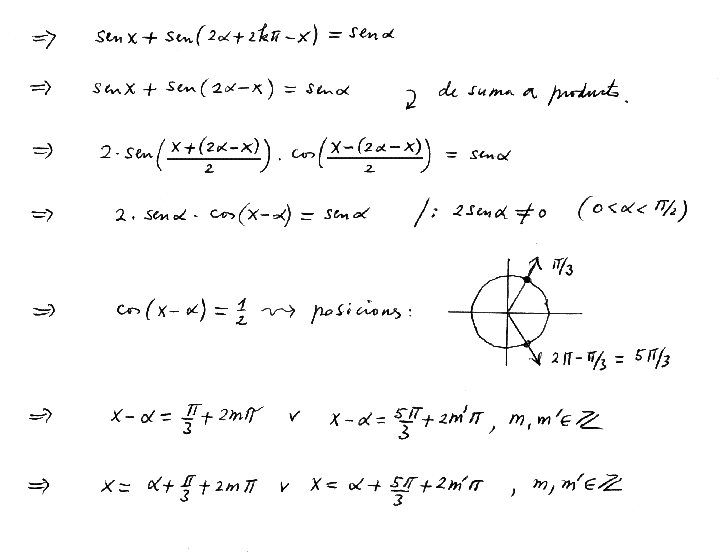 ⇒ sen x + sen(2α+2kπ−x) = sen α
⇒ sen x + sen(2α−x) = sen α de suma a producto.
⇒ 2·sen((x+(2α−x))/2)·cos((x−(2α−x))/2) = sen α
⇒ 2·sen α·cos(x−α) = sen α /: 2 sen α ≠ 0 (0<α<π/2)
π/3
⇒ cos(x−α) = 1/2 ⇝ posicions:
2π−π/3 = 5π/3
⇒ x−α = π/3 + 2mπ ∨ x−α = 5π/3 + 2m'π, m, m' ∈ ℤ
⇒ x = α + π/3 + 2mπ ∨ x = α + 5π/3 + 2m'π, m, m' ∈ ℤ